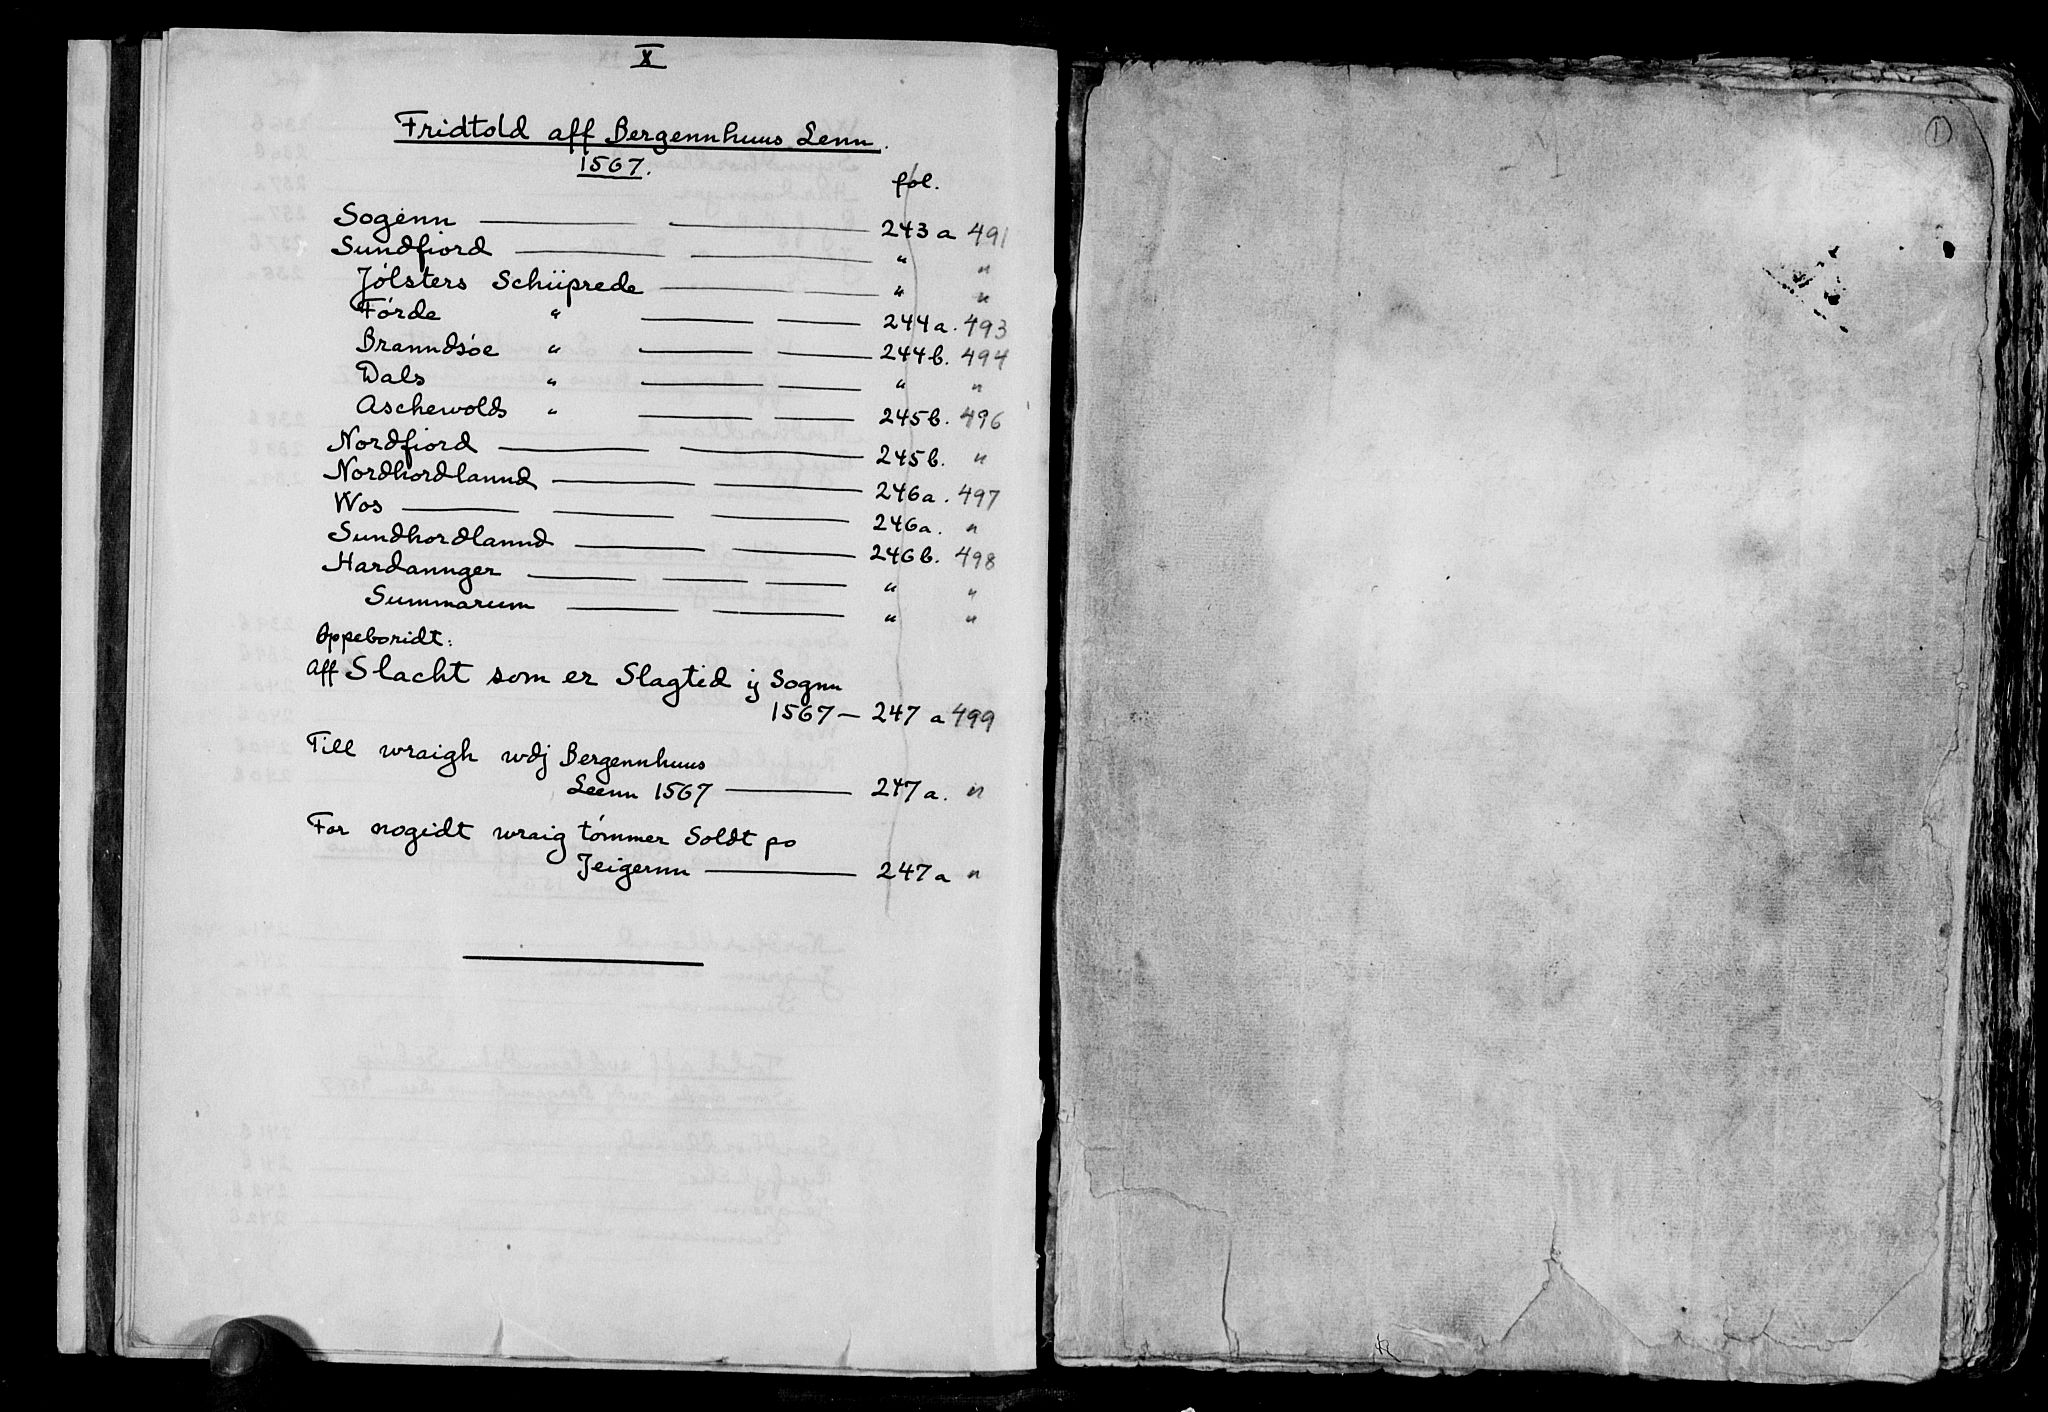 X
Fridtold aff Bergennhuus Lenn.
1567.
fol.
Sogenn 243 a 491
Sundfiord " "
Jølsters Schiiprede " "
Førde " 244 a. 493
Branndsøe " 244 b. 494
Dals " " "
Aschewolds " 245 b. 496
Nordfiord 245 b. "
Nordhordlannd 246 a. 497
Wos 246 a. "
Sundhordlannd 246 b. 498
Hardannger " "
Summarum " "
Oppeboridt:
Aff Slacht som er Slagtid ij Sognn
1567 — 247 a 499
Till wraigh wdj Bergennhuus
Leenn 1567 247 a. "
For nogidt wraig tømmer Soldt po
Jeigernn 247 a "
1